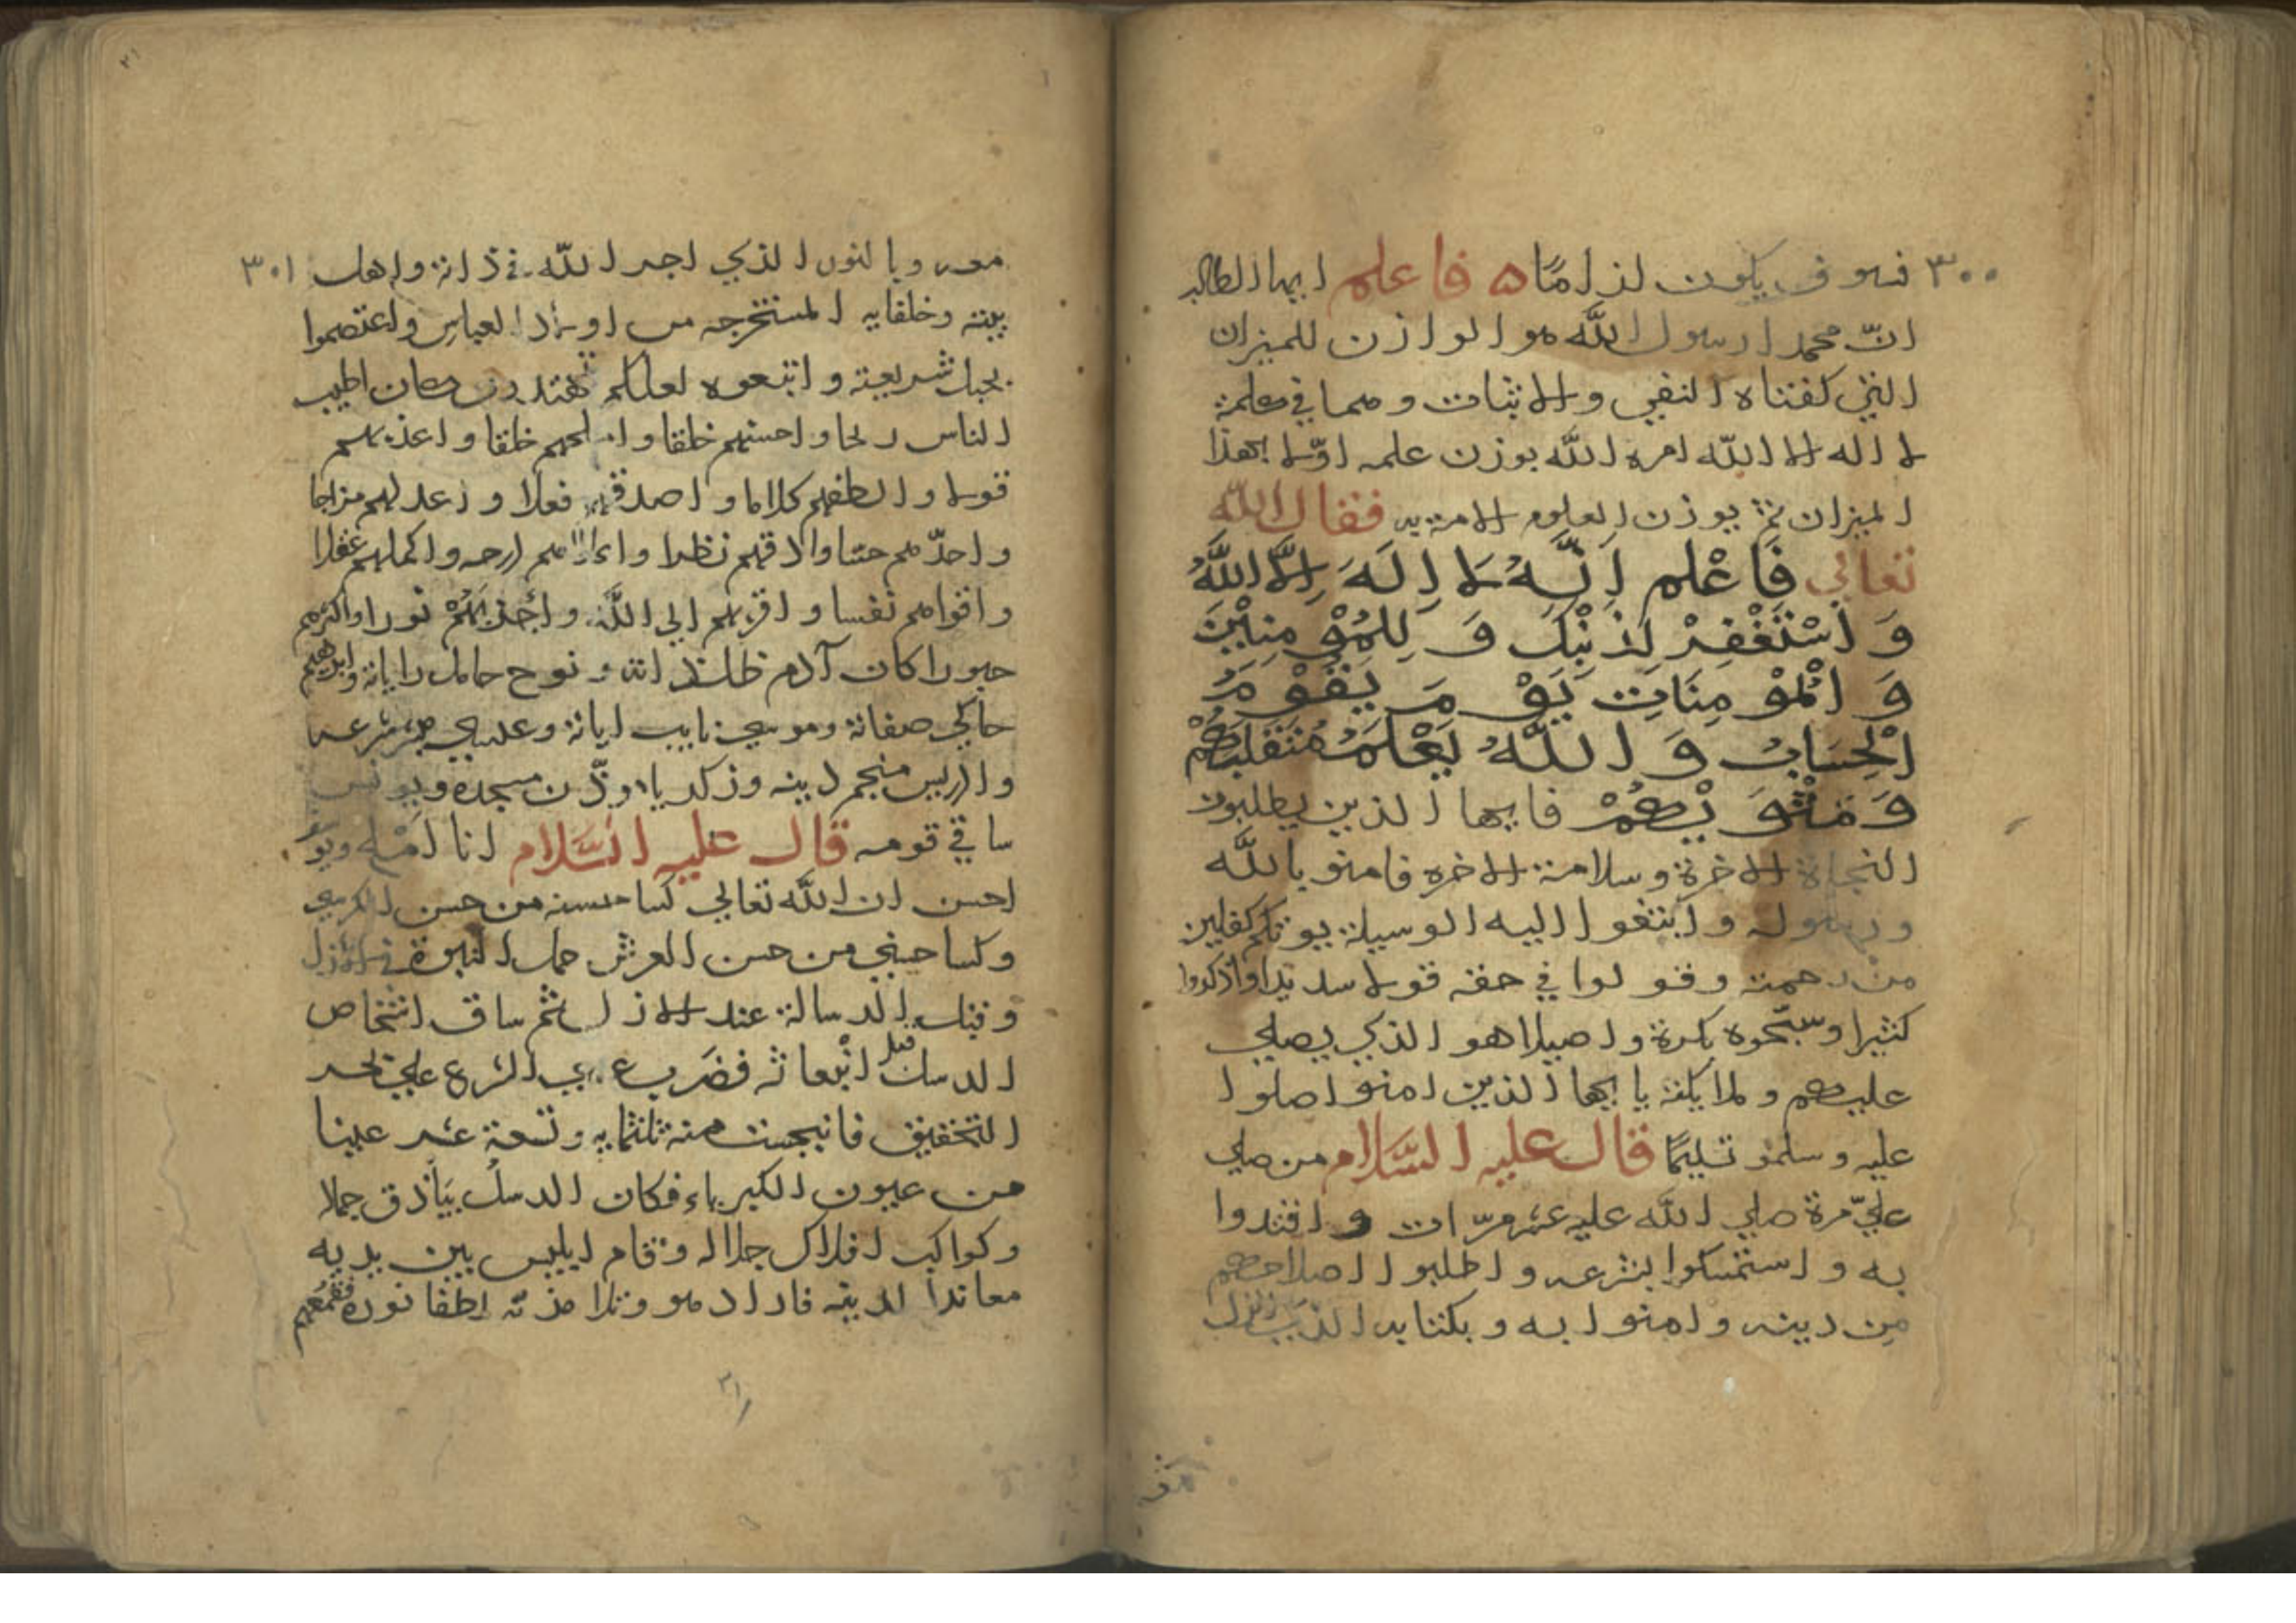 ٣٠٠ فسوف يكون لزامًا ه فاعلم ايها الطالب
انّ محمدا رسول اللّه هو الوازن للميزان
التي كفتاه النفي والاثبات وهما في كلمة
لا اله الا اللّه امره اللّه بوزن علمه اوّلا بهذا
الميزان ثم يوزن العلوم الامتيه فقال اللّه
تعالي فَاعْلم اِنَّهُ لا اِلَهَ اِلاَّ اللَّهُ
وَاسْتَغْفِرْ لذنْبِكَ وَلِلمُوْمِنِيْنَ
وَالْمُوْمِنَاتِ يَوْمَ يَقُوْمُ
الْحِسَابُ وَاللّهُ يَعْلَمُ مُتَقَلبَهُمْ
وَمَثْوَيْهُمْ فايها الذين يطلبون
النجاة الاخرة وسلامة الاخره فامنو باللّه
ورسوله وابتغوا اليه الوسيلة يوتكم كفلين
من رحمته وقولوا في حقه قولا سديدا واذكروا
كثيرا وسبّحوه بكرة واصيلا هو الذي يصلي
عليهم وملايكته يا ايها الذين امنوا صلوا
عليه وسلمو تسليمًا قال عليه السَّلام من صلي
عليّ مرة صلي اللّه عليه عشر مرّات واقتدوا
به واستمسكوا بشرعه واطلبوا اصلاحهم
مِن دينه وامنوا به وبكتابه الذي انزل
معه وبالنور الذي اجر اللّه في ذاته واهل ٣٠١
بيته وخلفايه المستخرجه من اولاد العباس واعتصموا
بحبل شريعته واتبعوه لعلكم تهتدون وكان اطيب
الناس ريحا واحسنهم خلقا واملحهم خلقا واعذبهم
قولا والطفهم كلاما واصدقهم فعلا واعدلهم مزاجا
واحدّهم حسّا وادقهم نظرا واعلاهم ارحمه واكملهم عقلا
واقواهم نفسا واقربهم الي اللّه واجذبَهُمْ نورا واكثرهم
حبورا كان آدم ذاته ونوح حامل راياته وابرهيم
حاكي صفاته وموسي نايب اياته وعيسي شرعه
وادريس منجم دينه وزكريا موذّن مسجده ويونس
ساقي قومه قال عليه السَّلام انا املح ويوسف
احسن ان اللّه تعالي كسا حسنه من حسن الكرسي
وكسا حسني من حسن العرش حمل النبوة في الازل
وقبل الرسالة عند الازل ثم ساق اشخاص
الرسل قبل انبعاثه فضرب الشرع علي حجر
التحقيق فانبجست منه ثلثمايه وتسعة عشر عينا
من عيون الكبرياء فكان الرسل بياذق جمالا
وكواكب افلاك جلاله وقام ابليس بين يديه
معاندا لدينه فاراد هو وذريته اطفا نوره فقمعهم